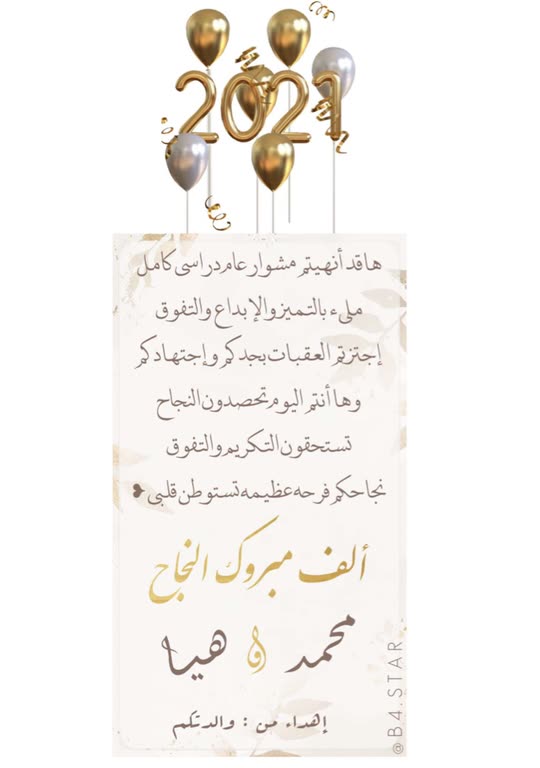 2021
ها قد أنهيتم مشوار عام دراسى كامل
ملىء بالتميز والإبداع والتفوق
إجتزتم العقبات بجدكم وإجتهادكم
وها أنتم اليوم تحصدون النجاح
تستحقون التكريم والتفوق
نجاحكم فرحه عظيمه تستوطن قلبى
ألف مبروك النجاح
محمد و هيا
إهداء من : والدتكم
@B4.STAR